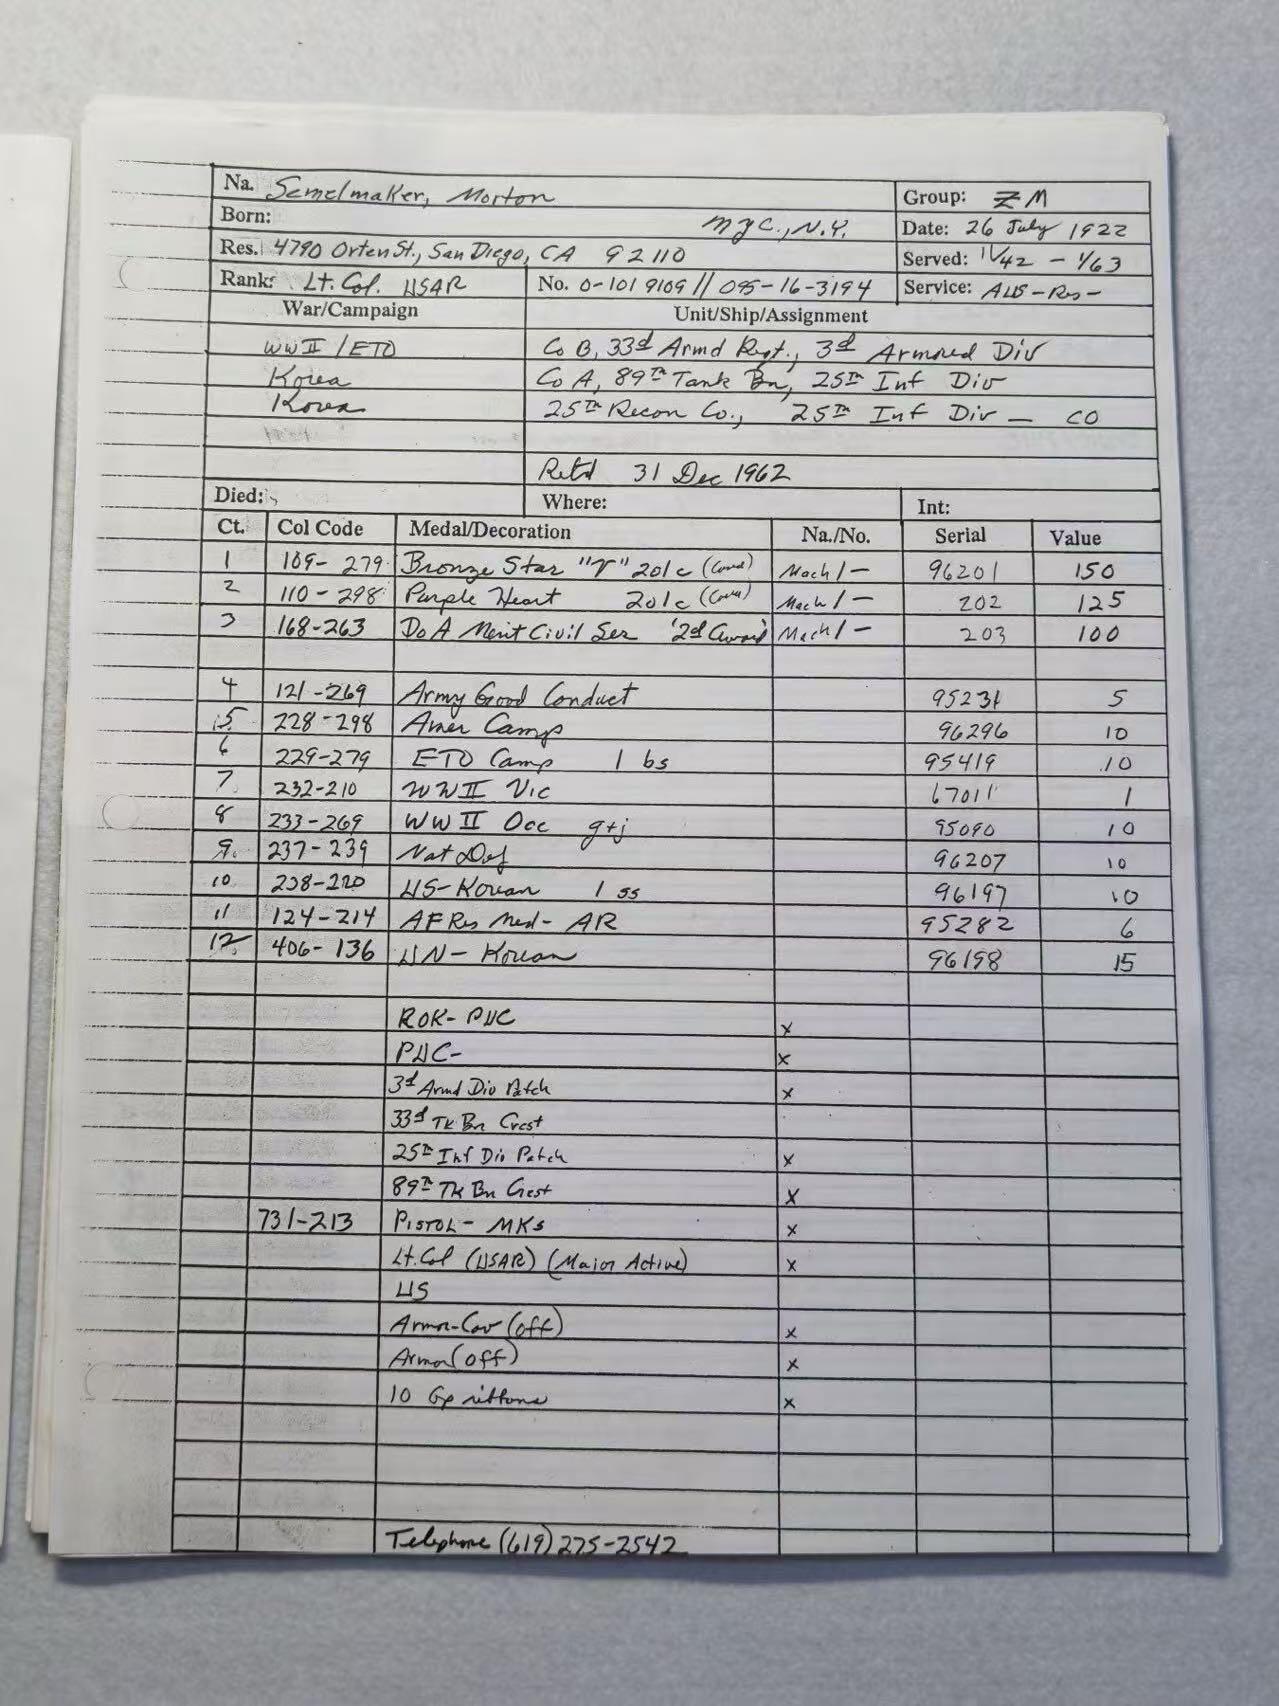 Na. Semelmaker, Morton Group: ZM
Born: NYC., N.Y. Date: 26 July 1922
Res. 4790 Orten St., San Diego, CA 92110 Served: 11/42 - 1/63
Rank: Lt. Col. USAR No. 0-1019109 // 095-16-3194 Service: AUS-Res-
War/Campaign Unit/Ship/Assignment
WWII/ETO Co B, 33d Armd Rgt., 3d Armored Div
Korea Co A, 89th Tank Bn, 25th Inf Div
Korea 25th Recon Co., 25th Inf Div — CO
Retd 31 Dec 1962
Died: Where: Int:
Ct. Col Code Medal/Decoration Na./No. Serial Value
1 109-279 Bronze Star "V" 2olc Mach/- 96201 150
2 110-298 Purple Heart 2olc Mach/- 202 125
3 168-263 DoA Merit Civil Ser '2d Award' Mach/- 203 100
4 121-269 Army Good Conduct 95231 5
5. 228-298 Amer Camp 96296 10
6 229-279 ETO Camp 1 bs 95419 10
7. 232-210 WWII Vic 67011 1
8 233-269 WWII Occ g+j 95090 10
9. 237-239 Nat Def 96207 10
10 238-220 US-Korean 1 ss 96197 10
11 124-214 AF Res Med- AR 95282 6
12 406-136 UN-Korean 96198 15
ROK-PUC x
PUC- x
3d Armd Div Patch x
33d Tk Bn Crest
25th Inf Div Patch x
89th Tk Bn Crest x
731-213 PISTOL- MKs x
Lt.Col (USAR) (Major Active) x
US
Armor-Cav (off) x
Armor (off) x
10 Gp ribbons x
Telephone (619) 275-2542